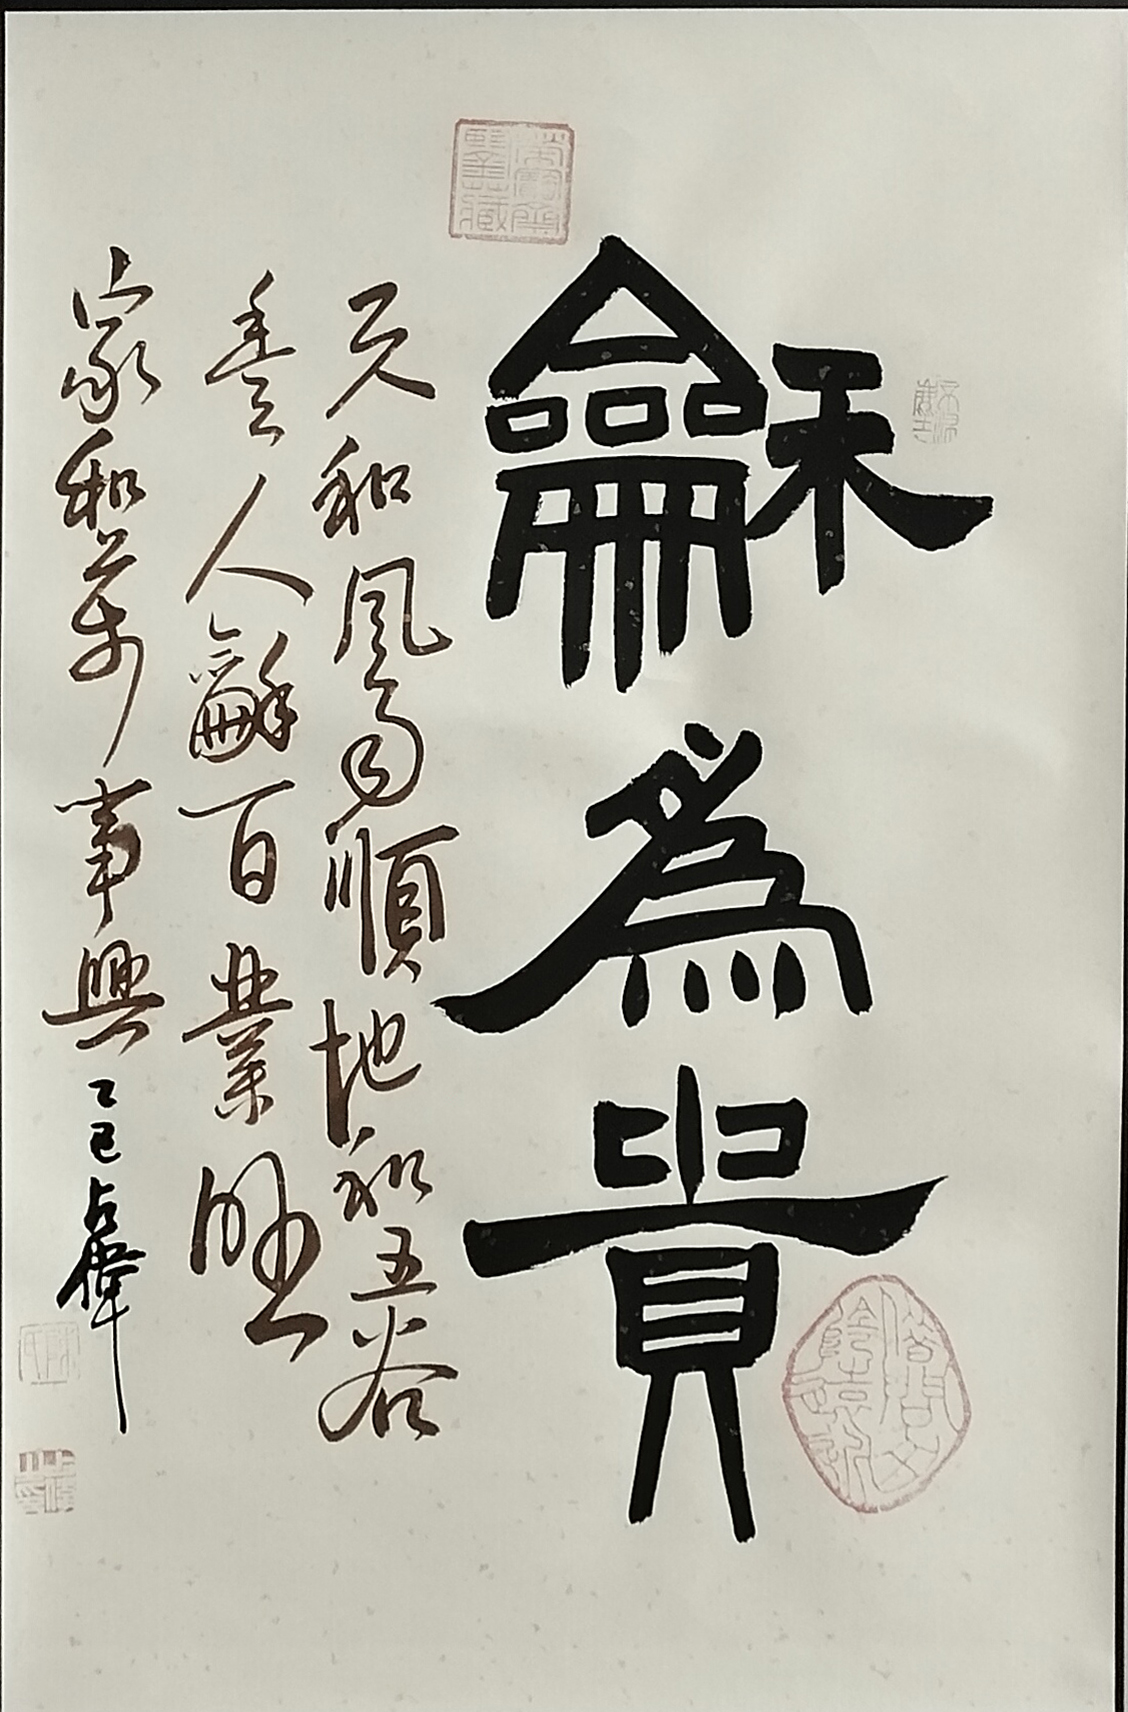 龢為貴
天和風雨順地和五谷
豐人龢百業旺
家和萬事興乙巳占